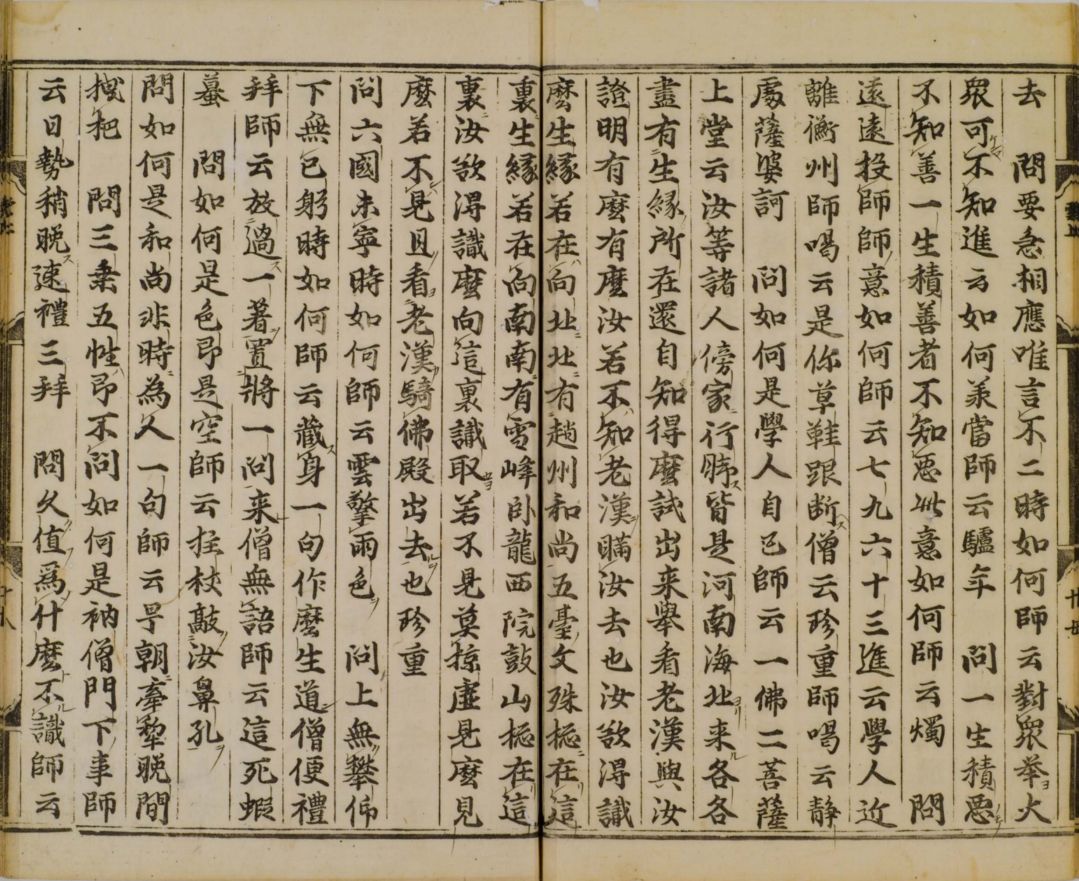 去　問要急相應唯言不二時如何師云對衆舉火
衆可不知進云如何承當師云驢年　問一生積惡
不知善一生積善者不知惡此意如何師云燭　問
遠遠投師師意如何師云七九六十三進云學人近
離衡州師喝云是你草鞋跟断僧云珍重師喝云静
處薩婆訶　問如何是學人自己師云一佛二菩薩
上堂云汝等諸人傍家行脚皆是河南海北来各各
盡有生縁所在還自知得麼試出来舉看老漢與汝
證明有麼有麼汝若不知老漢瞞汝去也汝欲得識
麼生縁若在向北北有趙州和尚五臺文殊㧾在這
裏生縁若在向南南有雪峰卧龍西院鼓山㧾在這
裏汝欲得識麼向這裏識取若不見莫掠虛見麼見
麼若不見且看老漢騎佛殿出去也珍重
問六國未寧時如何師云雲擎雨色　問上無攀仰
下無己躬時如何師云藏身一句作麼生道僧便禮
拜師云放過一著置將一问来僧無語師云這死蝦
蟇　問如何是色即是空師云拄杖敲汝鼻孔
問如何是和尚非時為人一句師云早朝牽犂晚間
拽杷　問三乗五性即不问如何是衲僧門下事師
云日勢稍晚速禮三拜　問久值為什麼不識師云
十八